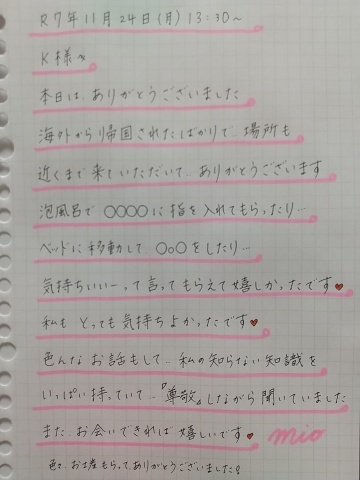 R7年11月24日(月)13:30～
K様へ
本日は、ありがとうございました
海外から帰国されたばかりで、場所も
近くまで来ていただいて、ありがとうございます
泡風呂で ○○○○に指を入れてもらったり…
ベッドに移動して ○○○をしたり…
気持ちいいーって言ってもらえて嬉しかったです♥
私も とっても気持ちよかったです♥
色んなお話もして、私の知らない知識を
いっぱい持っていて…『尊敬』しながら聞いていました
また、お会いできれば嬉しいです♥ mio
色々、お土産もらってありがとうございました!